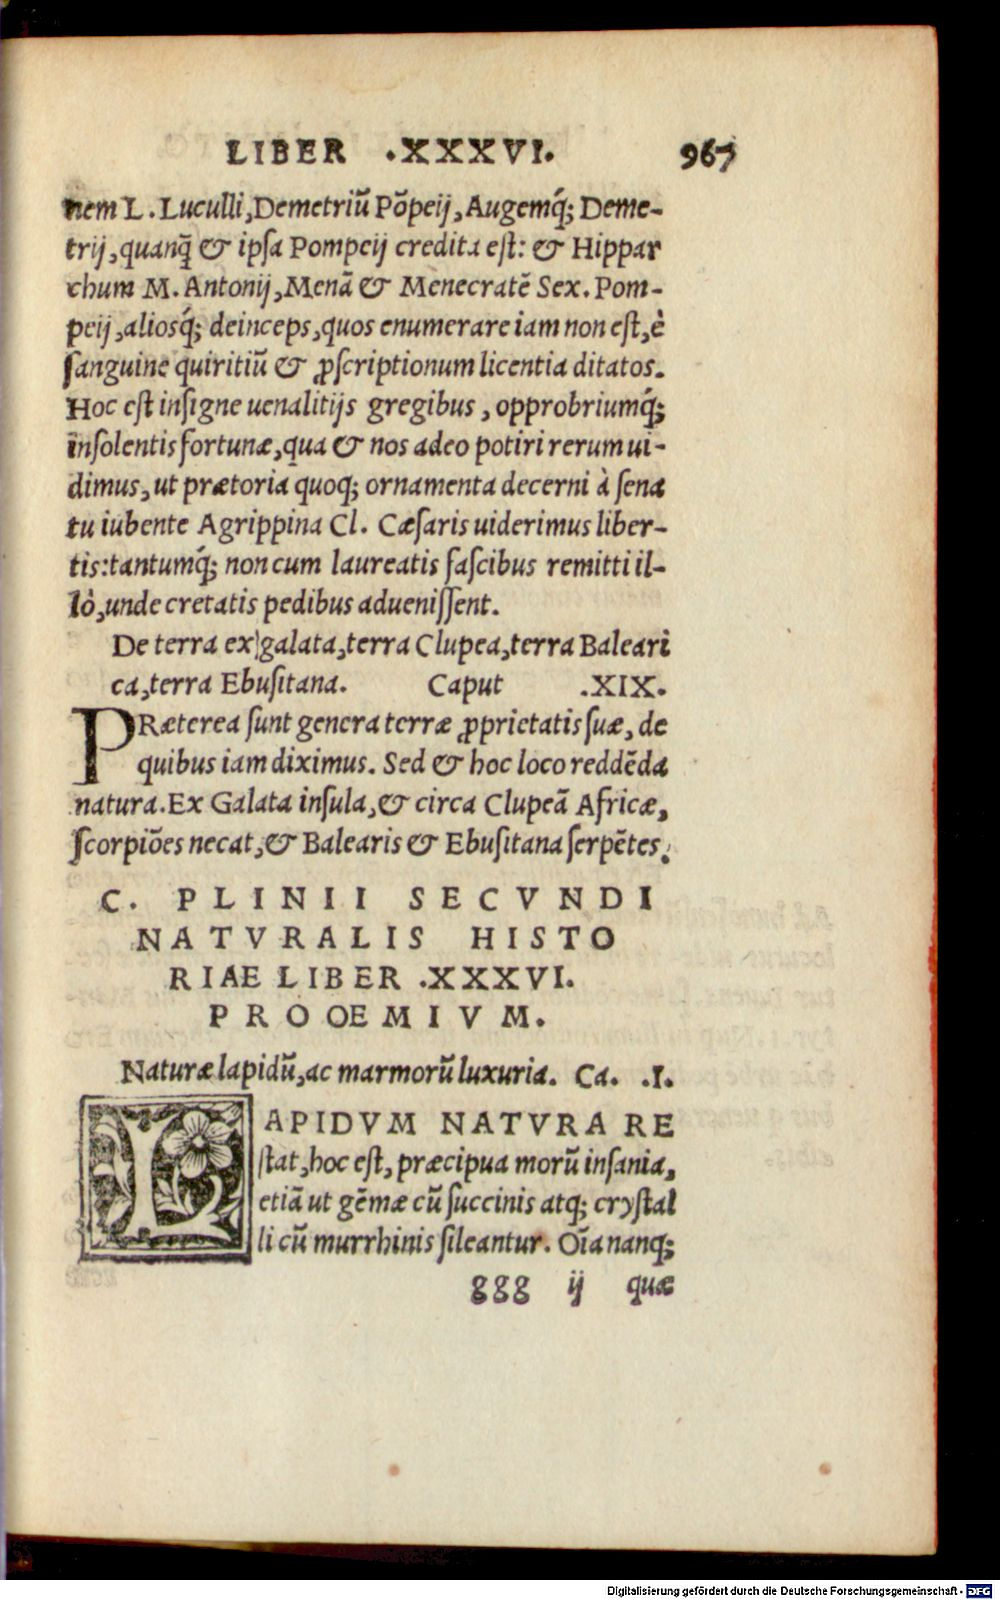 LIBER .XXXVI. 967
nem L. Luculli, Demetriū Pōpeij, Augemq́; Deme-
trij, quanq̄ & ipsa Pompeij credita est: & Hippar
chum M. Antonij, Menā & Menecratē Sex. Pom-
peij, aliosq́; deinceps, quos enumerare iam non est, è
ſanguine quiritiū & ꝓſcriptionum licentia ditatos.
Hoc eſt inſigne uenalitijs gregibus, opprobriumq́;
inſolentis fortunæ, qua & nos adeo potiri rerum ui-
dimus, ut prætoria quoq; ornamenta decerni à ſena
tu iubente Agrippina Cl. Cæſaris uiderimus liber-
tis: tantumq́; non cum laureatis faſcibus remitti il-
lò, unde cretatis pedibus adueniſſent.
De terra ex galata, terra Clupea, terra Baleari
ca, terra Ebuſitana. Caput .XIX.
PRæterea ſunt genera terræ ꝓprietatis ſuæ, de
quibus iam diximus. Sed & hoc loco reddēda
natura. Ex Galata inſula, & circa Clupeā Africæ,
ſcorpiōes necat, & Balearis & Ebuſitana ſerpētes.
C. PLINII SECVNDI
NATVRALIS HISTO
RIAE LIBER .XXXVI.
PROOEMIVM.
Naturæ lapidū, ac marmorū luxuria. Ca. .I.
LAPIDVM NATVRA RE
ſtat, hoc eſt, præcipua morū inſania,
etiā ut gēmæ cū ſuccinis atq; cryſtal
li cū murrhinis ſileantur. Oīa nanq;
ggg ij quæ
Digitalisierung gefördert durch die Deutsche Forschungsgemeinschaft - DFG